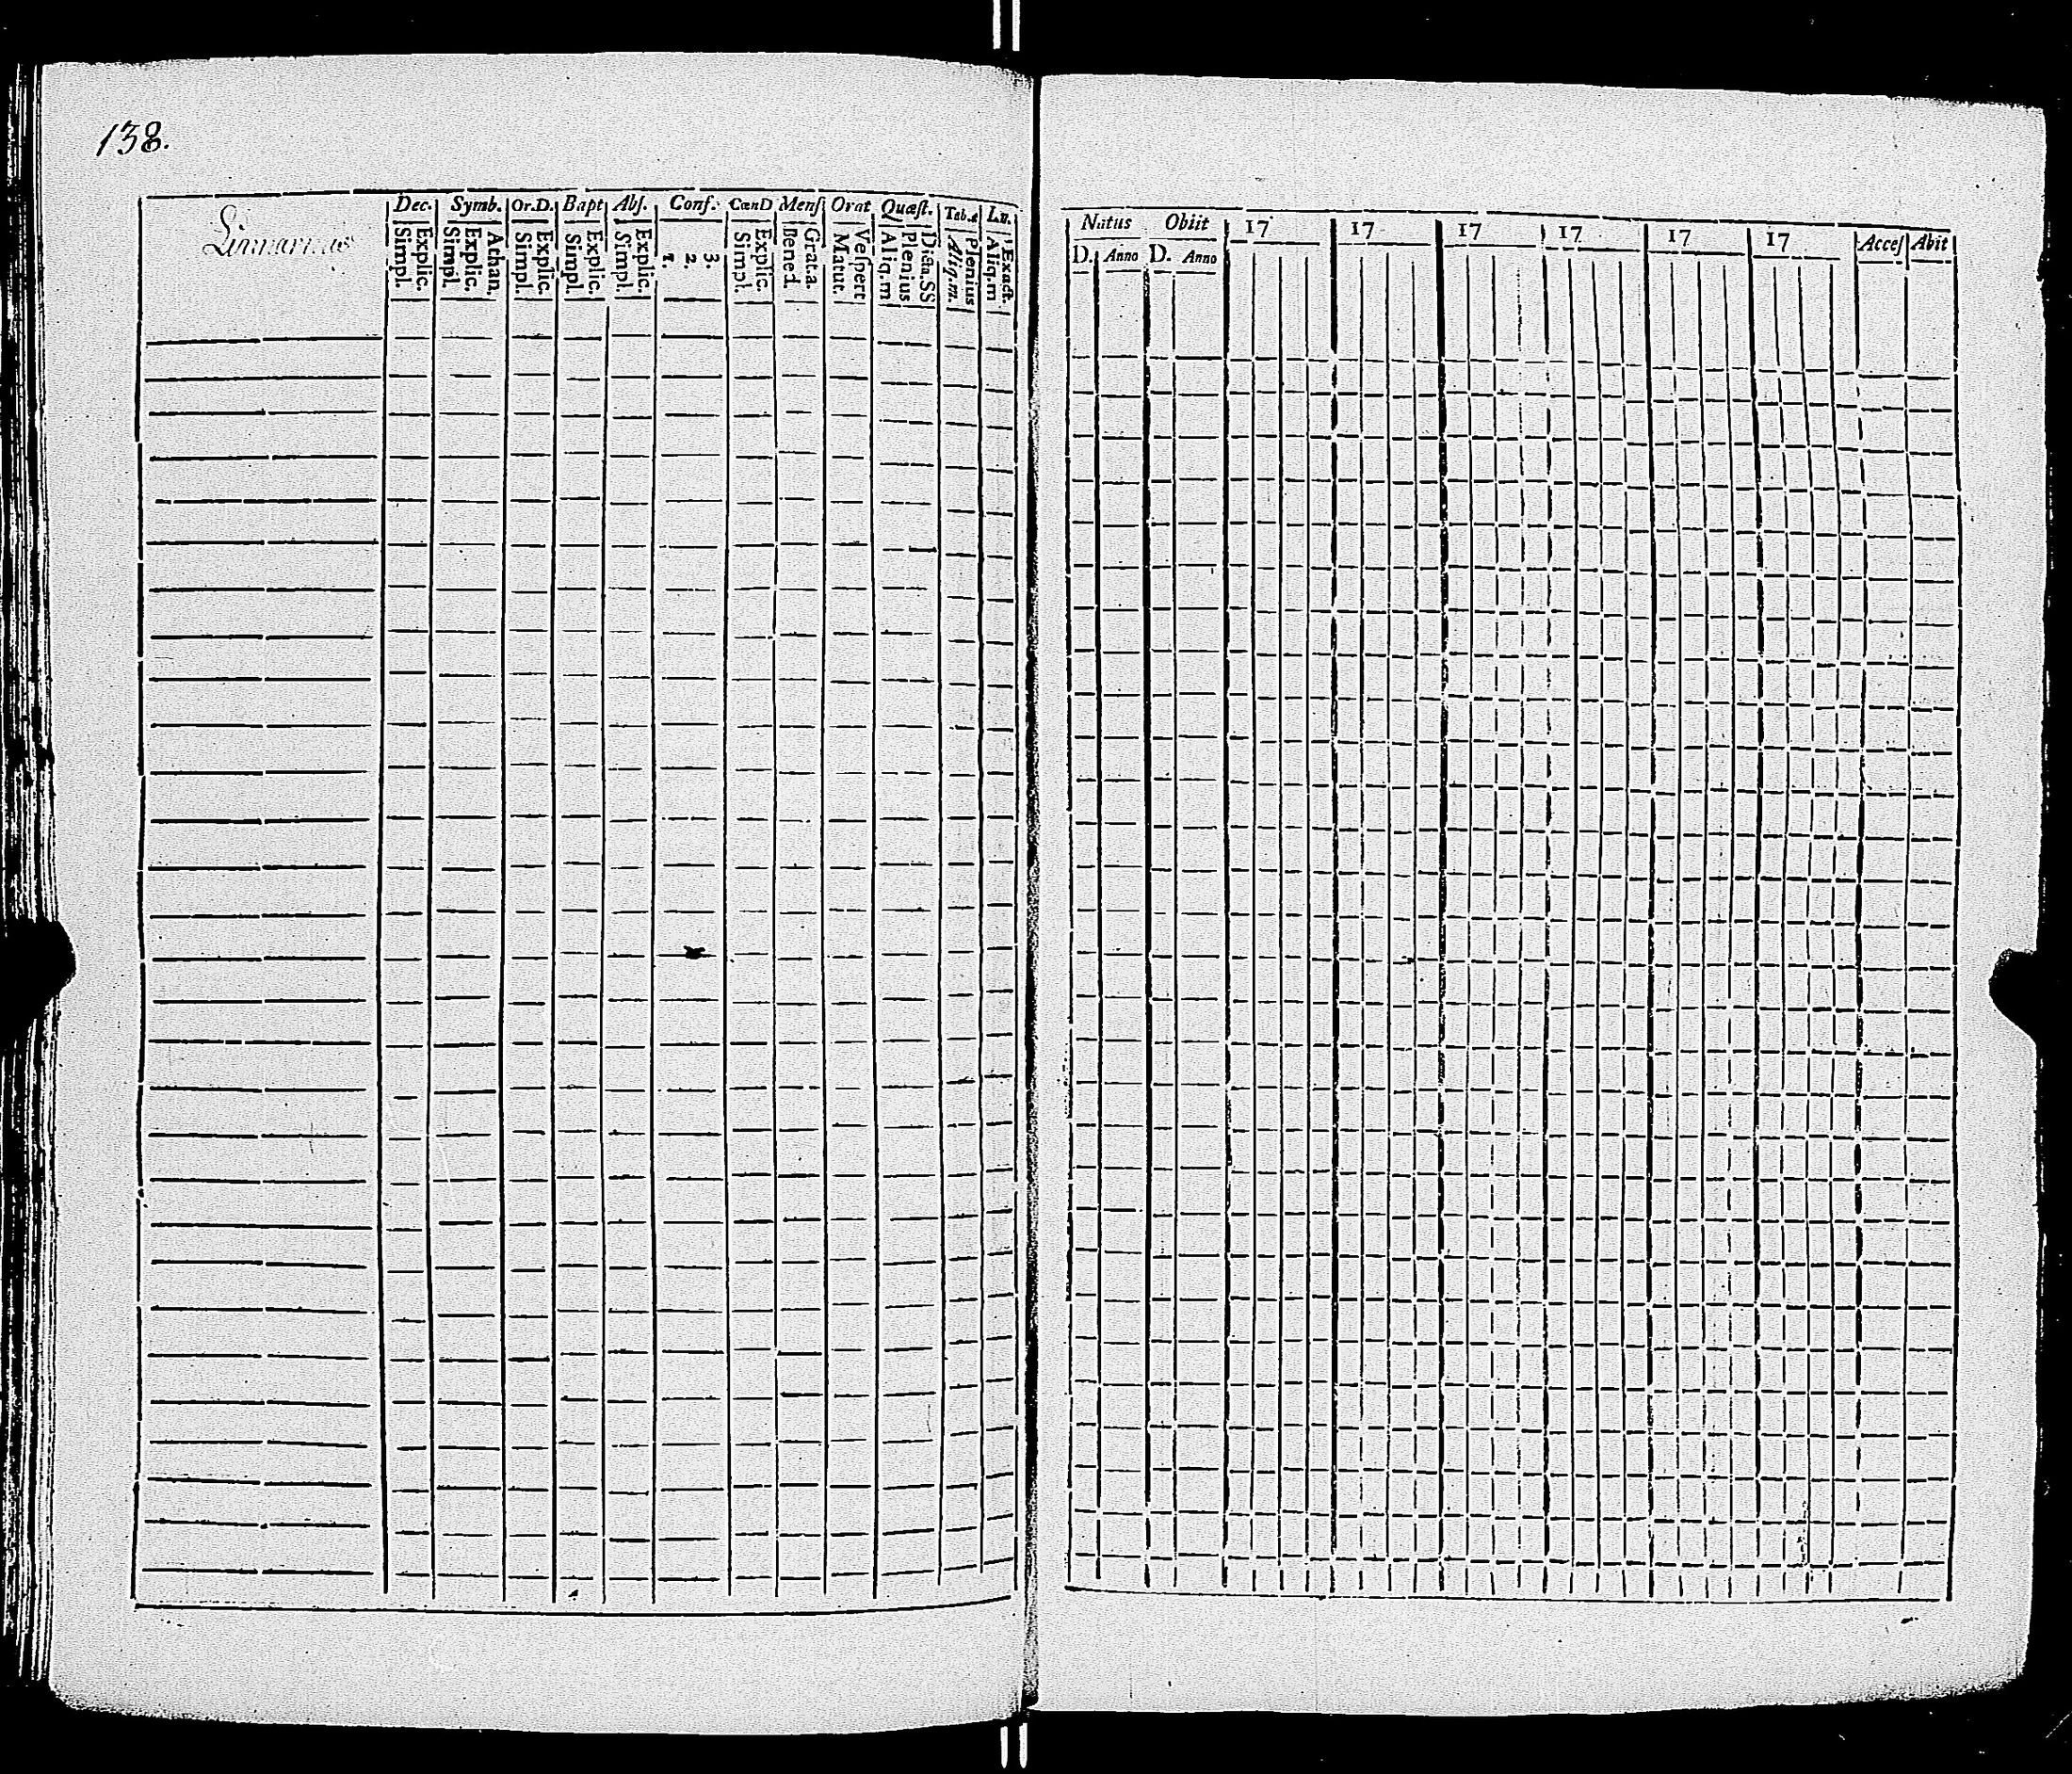 138.
Dec. Symb. Or.D. Bapt Abſ. Conf. CœnD Menſ Orat Quæſt. Tab.æ
Explic. Simpl. Athan. Explic. Simpl. Explic. Simpl. Explic. Simpl. Explic. Simpl. 3. 2. 1. Explic. Simpl. Grata. Bened. Veſpert Matut. Plenius Aliq.m Plenius Aliq.m. Exact. Aliq.m
Natus Obiit 17 17 17 17 17 17 Acceſ Abit
D. Anno D. Anno